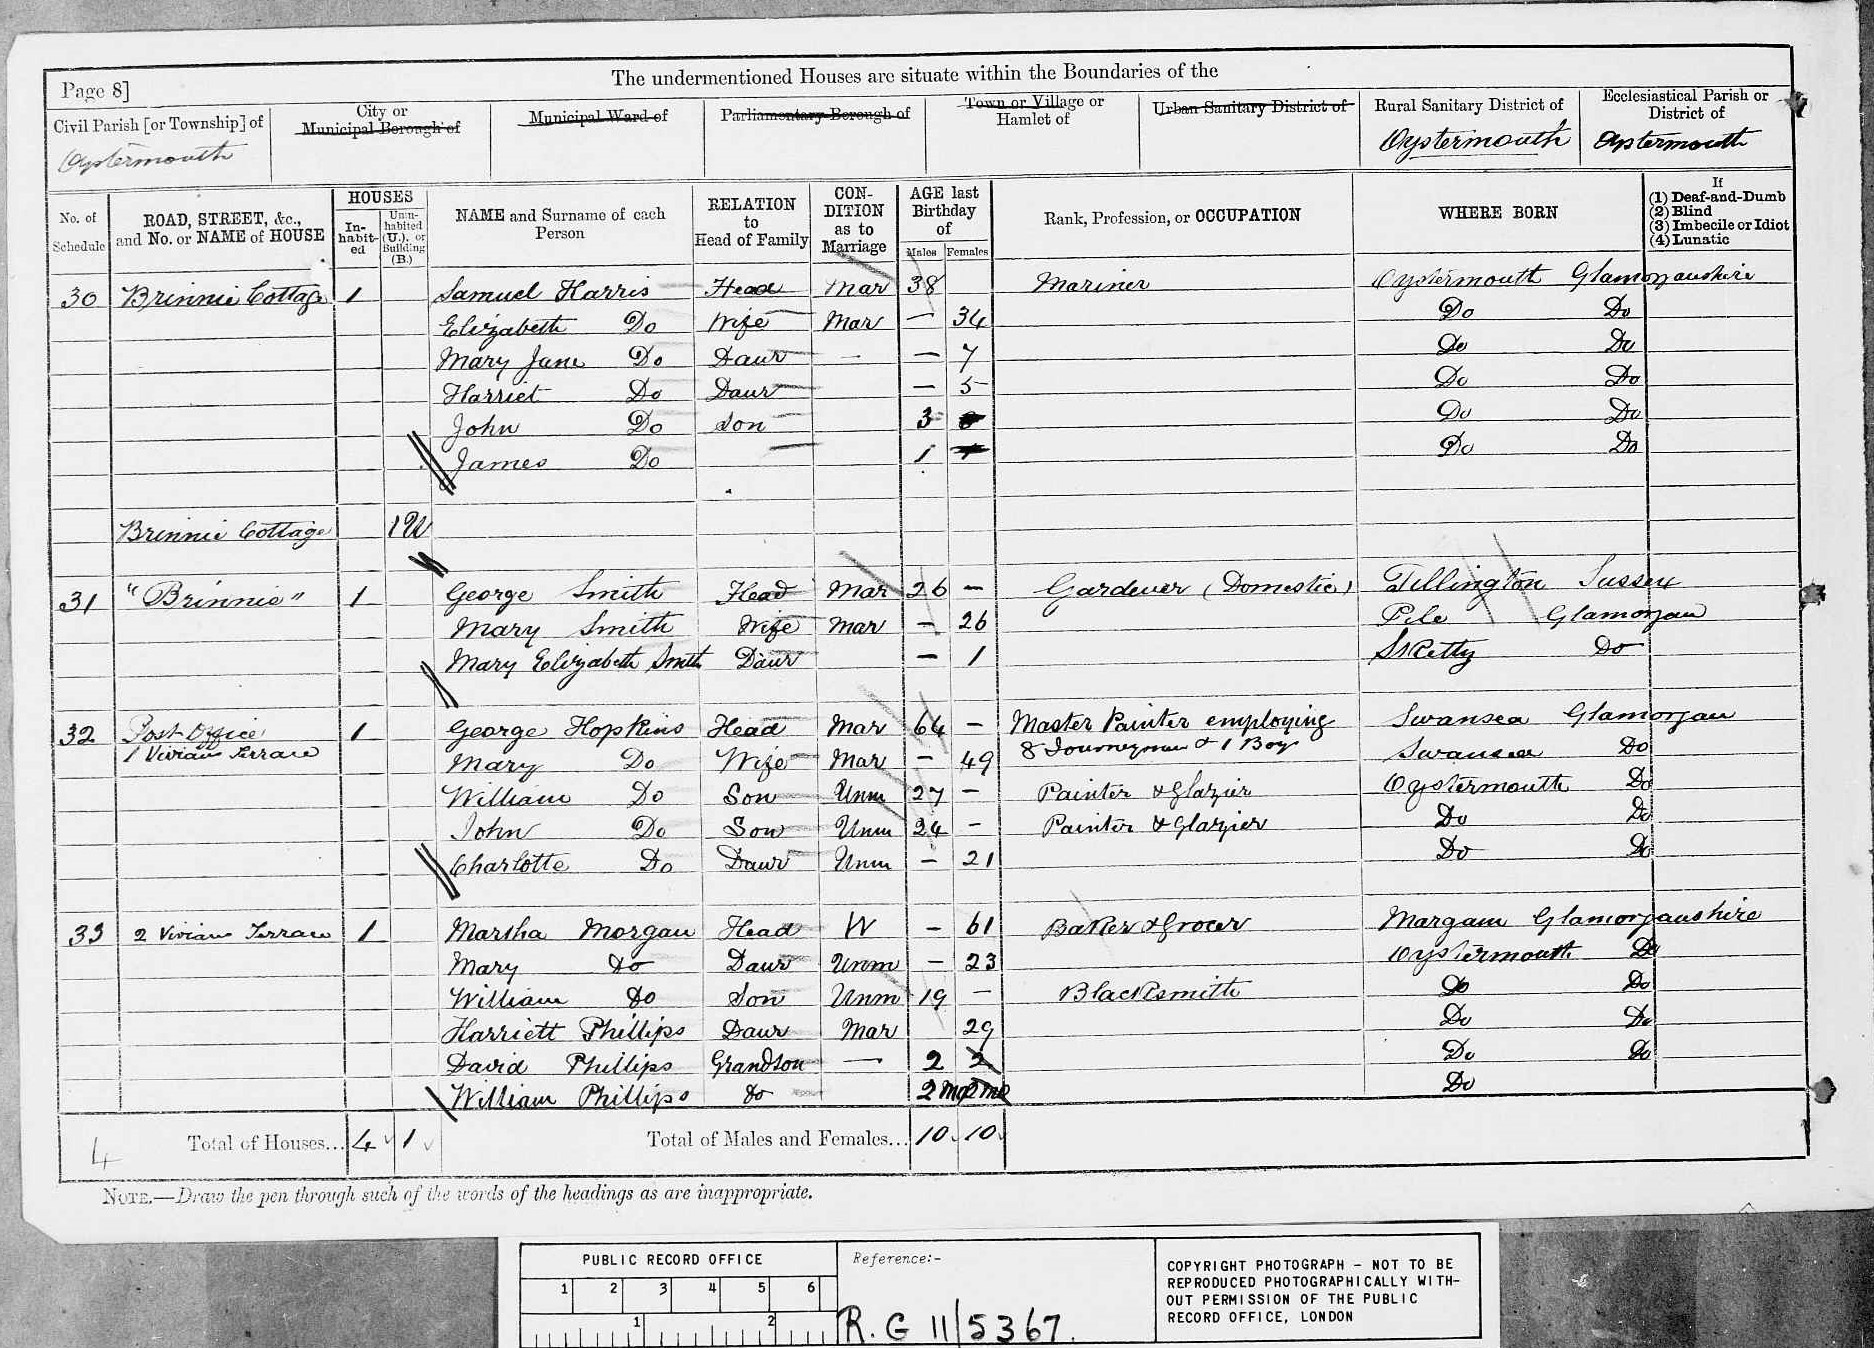 The undermentioned Houses are situate within the Boundaries of the
Page 8]
Civil Parish [or Township] of
Oystermouth
City or
Municipal Borough of
Municipal Ward of
Parliamentary Borough of
Town or Village or
Hamlet of
Urban Sanitary District of
Rural Sanitary District of
Oystermouth
Ecclesiastical Parish or
District of
Oystermouth
No. of Schedule
ROAD, STREET, &c., and No. or NAME of HOUSE
HOUSES
In-habit-ed
Unin-habited (U.), or Building (B.)
NAME and Surname of each Person
RELATION to Head of Family
CON-DITION as to Marriage
AGE last Birthday of
Males
Females
Rank, Profession, or OCCUPATION
WHERE BORN
If
(1) Deaf-and-Dumb
(2) Blind
(3) Imbecile or Idiot
(4) Lunatic
30 Brinnie Cottage 1 Samuel Harris Head Mar 38 Mariner Oystermouth Glamorganshire
Elizabeth Do Wife Mar – 34 Do Do
Mary Jane Do Daur – – 7 Do Do
Harriet Do Daur – 5 Do Do
John Do Son 3 Do Do
James Do 1 Do Do
Brinnie Cottage 1U
31 "Brinnie" 1 George Smith Head Mar 26 – Gardener (Domestic) Tillington Sussex
Mary Smith Wife Mar – 26 Pile Glamorgan
Mary Elizabeth Smith Daur – 1 Sketty Do
32 Post Office 1 George Hopkins Head Mar 64 – Master Painter employing Swansea Glamorgan
1 Vivian Terrace 8 Journeymen & 1 Boy
Mary Do Wife Mar – 49 Swansea Do
William Do Son Unm 27 – Painter & Glazier Oystermouth Do
John Do Son Unm 24 – Painter & Glazier Do Do
Charlotte Do Daur Unm – 21 Do Do
33 2 Vivian Terrace 1 Martha Morgan Head W – 61 Baker & Grocer Margam Glamorganshire
Mary Do Daur Unm – 23 Oystermouth Do
William Do Son Unm 19 – Blacksmith Do Do
Harriett Phillips Daur Mar 29 Do Do
David Phillips Grandson – 2 2 Do Do
William Phillips Do 2 Mo 2 Mo Do
4 Total of Houses... 4 1 Total of Males and Females... 10 10
NOTE.—Draw the pen through such of the words of the headings as are inappropriate.
PUBLIC RECORD OFFICE
1 2 3 4 5 6
1 2
Reference:-
R.G 11/5367.
COPYRIGHT PHOTOGRAPH - NOT TO BE
REPRODUCED PHOTOGRAPHICALLY WITH-
OUT PERMISSION OF THE PUBLIC
RECORD OFFICE, LONDON